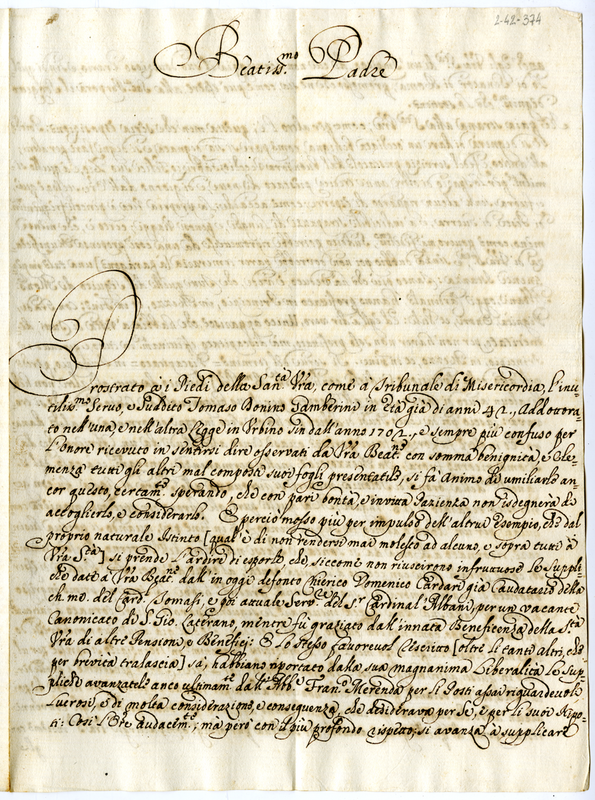 2-42-374
Beatiss.mo Padre
Prostrato à i Piedi della San.ta Vra, come a Tribunale di Misericordia, l'inu-
tiliss.mo Servo, e Suddito Tomaso Bonino Gamberini in età già di anni 42., Addottora-
to nell'una, e nell'altra Legge in Urbino sin dall'anno 1702., e sempre più confuso per
l'onore ricevuto in sentirsi dire osservati da Vra Beat.e con somma benignità, e Cle-
menza tutti gli altri mal composti suoi fogli presentatile, si fà Animo di umiliarle an-
cor questo, certam.e sperando, che con pari bontà, e invitta Pazienza non isdegnerà di
accoglierlo, e considerarlo. E perciò mosso più per impulso dell'altrui Esempio, che dal
proprio naturale Istinto [qual'è di non rendersi mai molesto ad alcuno, e sopra tutti à
Vra S.tà] si prende l'ardire di esporle, che siccome non riuscirono infruttuose le Suppli-
che date à Vra Beat.ne dall'in oggi defonto Chierico Domenico Cardari già Caudatario della
ch. me. del Card. Tomasi, e poi attuale Serv.re del S.r Cardinal Albani per un vacante
Canonicato di S. Gio. Laterano, mentre fù graziato dall'innata Beneficenza della S.tà
Vra di altre Pensioni, e Beneficj: E lo stesso favorevol Rescritto [oltre li tanti altri, che
per brevità tralascia] sà, habbiano riportato dalla sua magnanima Liberalità le Sup-
pliche avanzatele anco ultimam.te dall'Abb.e Fran.co Merenda per li Posti assai riguardevoli
Lucrosi, e di molta considerazione, e conseguenza, che desiderava per Se, e per li suoi Nipo-
ti: Così l'Ore audacem.e; mà però con il più profondo rispetto, si avanza à supplicare